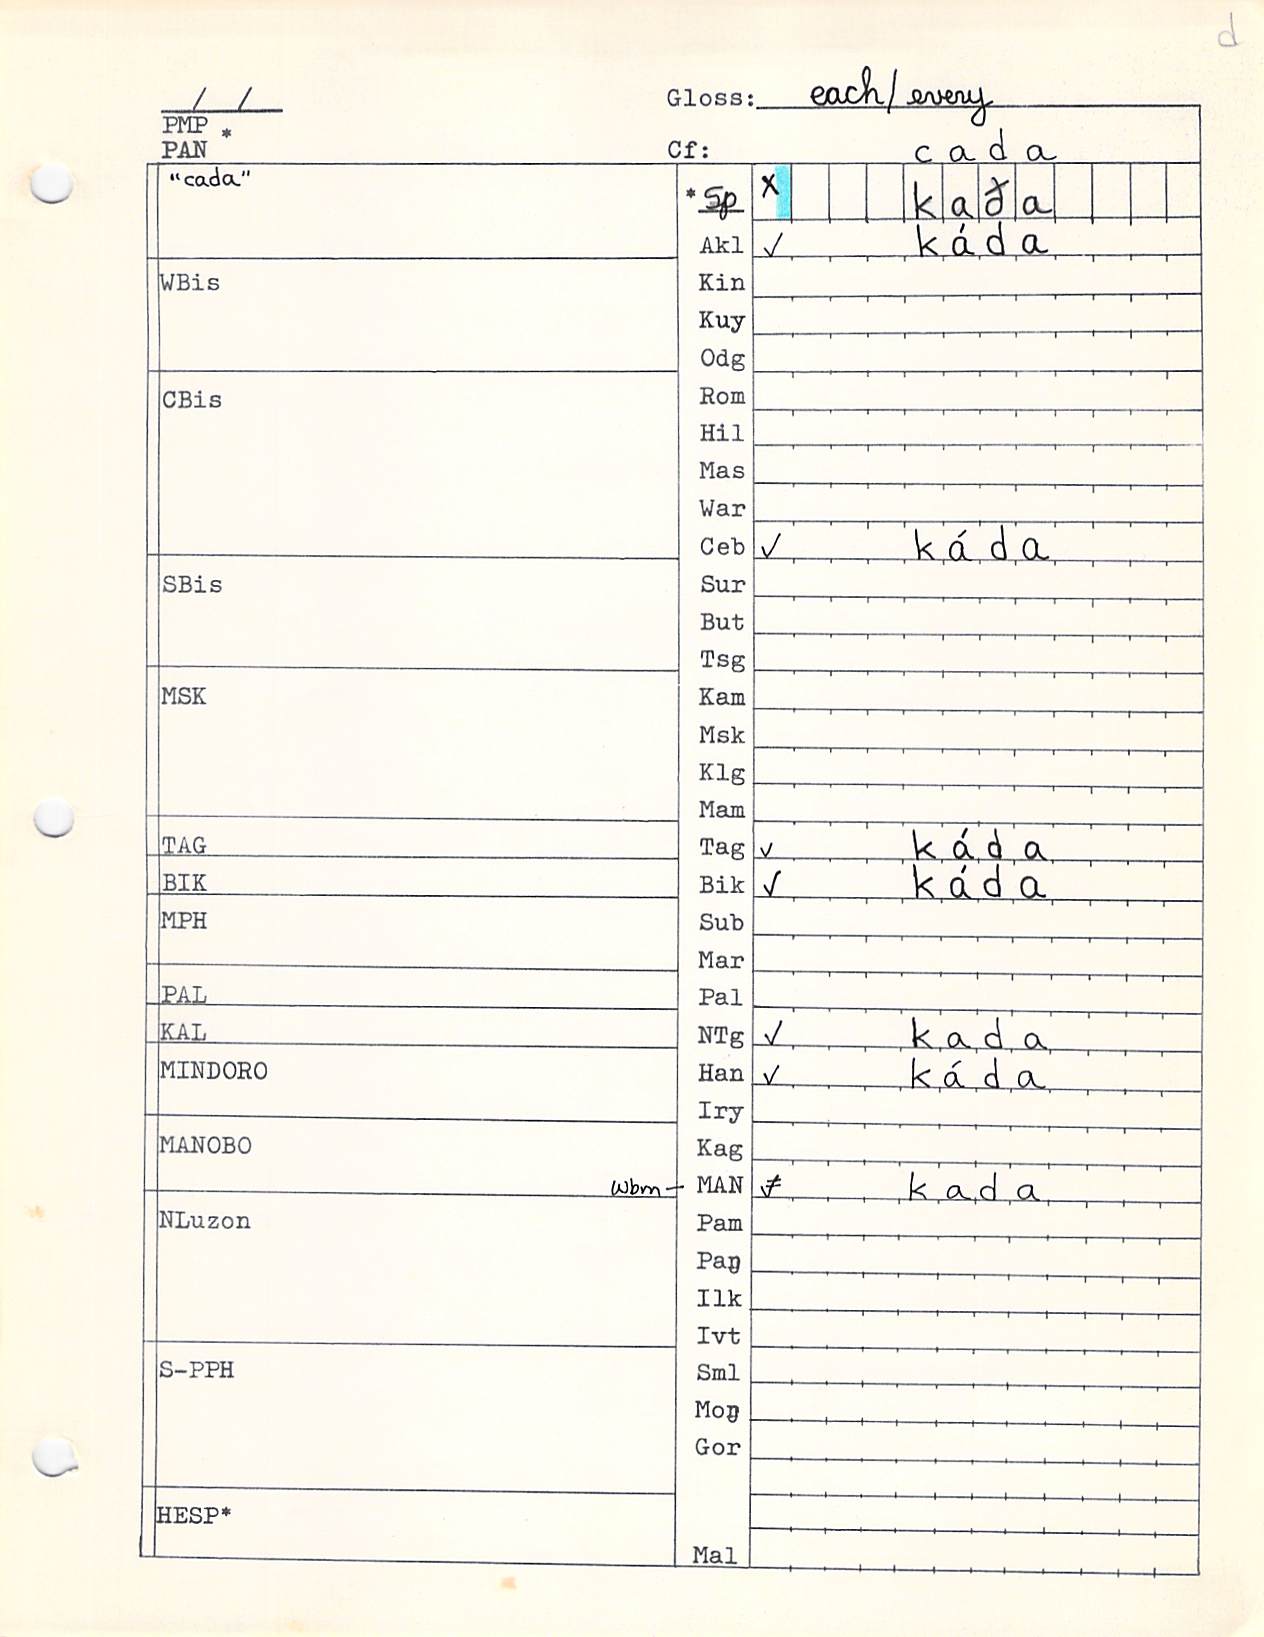 d
/ /
Gloss: each/every
PMP *
PAN
Cf: cada
"cada"
*Sp x kaða
Akl ✓ káda
WBis
Kin
Kuy
Odg
CBis
Rom
Hil
Mas
War
Ceb ✓ káda
SBis
Sur
But
Tsg
MSK
Kam
Msk
Klg
Mam
TAG
Tag ✓ káda
BIK
Bik ✓ káda
MPH
Sub
Mar
PAL
Pal
KAL
NTg ✓ kada
MINDORO
Han ✓ káda
Iry
MANOBO
Kag
Wbm — MAN ≠ kada
NLuzon
Pam
Paŋ
Ilk
Ivt
S-PPH
Sml
Moŋ
Gor
HESP*
Mal